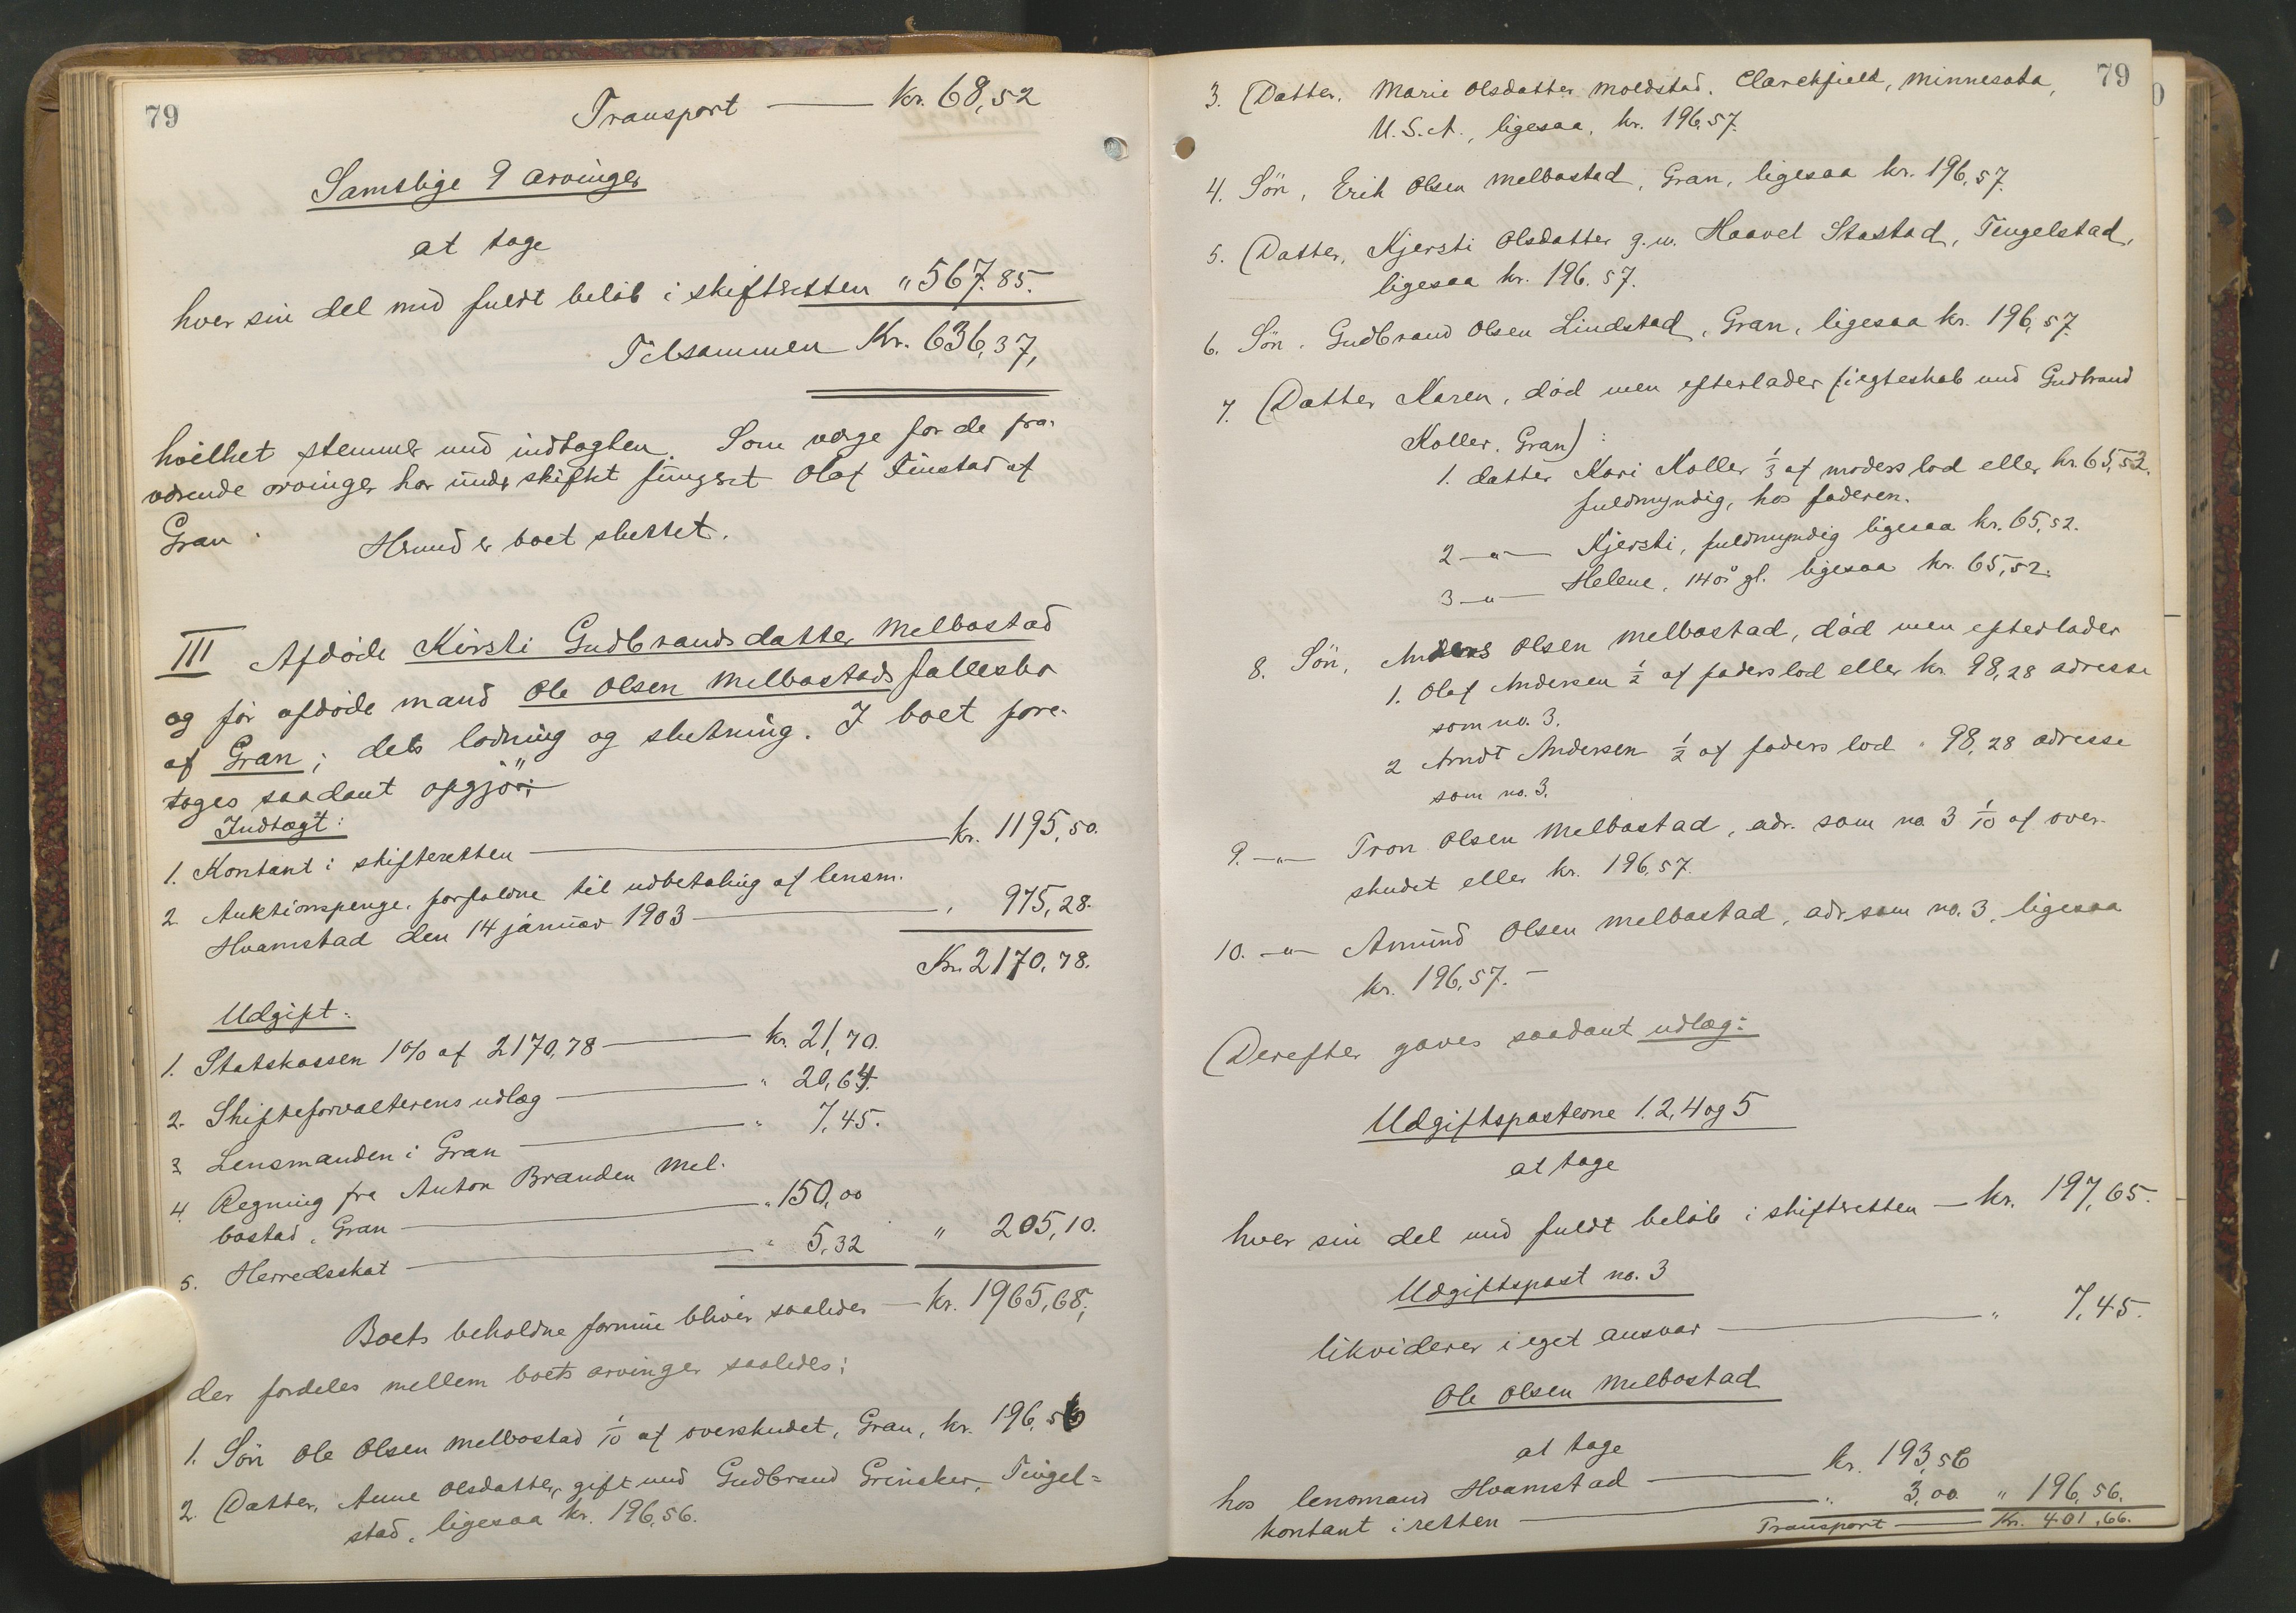 79
Transport — kr. 68,52
Samtlige 9 arvinger
at tage
hver sin del med fuldt beløb i skifteretten " 567.85.
Tilsammen Kr. 636,37,
hvilket stemmer med indtægten. Som værge for de fra-
værende arvinger har under skiftet fungeret Olaf Tinstad af
Gran.
Hermed er boet sluttet.
III Afdøde Kirsti Gudbrandsdatter Melbostad
og før afdøde mand Ole Olsen Melbostads fællesbo
af Gran; dets lodning og slutning. I boet fore-
tages saadant opgjør:
Indtægt:
1. Kontant i skifteretten — kr. 1195,50.
2. Auktionspenge, forfaldne til udbetaling af lensm.
Hvamstad den 14 januar 1903 — " 975,28.
Kr. 2170,78.
Udgift:
1. Statskassen 1% af 2170,78 — kr. 21,70.
2. Skifteforvalterens udlæg — " 20,64.
3. Lensmanden i Gran — " 7,45.
4. Regning fra Anton Branden Mel-
bostad, Gran — " 150,00
5. Herredsskat — " 5,32 " 205,10.
Boets beholdne formue bliver saaledes — kr. 1965,68,
der fordeles mellem boets arvinger saaledes:
1. Søn Ole Olsen Melbostad 1/10 af overskudet, Gran, kr. 196,56
2. Datter, Anne Olsdatter, gift med Gudbrand Grinaker, Tingel=
stad, ligesaa kr. 196,56.
79
3. Datter, Marie Olsdatter Moldstad, Clarekfield, Minnesota,
U.S.A., ligesaa, kr. 196,57.
4. Søn, Erik Olsen Melbostad, Gran, ligesaa kr. 196,57.
5. Datter, Kjersti Olsdatter g.m. Haavel Stastad, Tingelstad,
ligesaa kr. 196.57.
6. Søn, Gudbrand Olsen Lindstad, Gran, ligesaa kr. 196,57
7. Datter Karen, død men efterlader (i egteskab med Gudbrand
Koller, Gran):
1. datter Kari Koller 1/3 af moders lod eller kr. 65,53.
fuldmyndig, hos faderen.
2 —"— Kjersti, fuldmyndig ligesaa kr. 65,52.
3 —"— Helene, 14 år gl. ligesaa kr. 65,52.
8. Søn, Anders Olsen Melbostad, død men efterlader
1. Olaf Andersen 1/2 af faders lod eller kr. 98,28 adresse
som no. 3.
2 Arndt Andersen 1/2 af faders lod " 98,28 adresse
som no. 3.
9. —"— Tron Olsen Melbostad, adr. som no. 3 1/10 af over-
skudet eller kr. 196,57.
10. —"— Amund Olsen Melbostad, adr. som no. 3, ligesaa
kr. 196,57. —
Derefter gaves saadant udlæg:
Udgiftsposterne 1. 2, 4 og 5
at tage
hver sin del med fuldt beløb i skifteretten — kr. 197,65.
Udgiftspost no. 3
likviderer i eget ansvar — " 7,45.
Ole Olsen Melbostad
at tage
hos lensmand Hvamstad — kr. 193,56
kontant i retten — " 3,00 " 196,56.
Transport — Kr. 401,66.